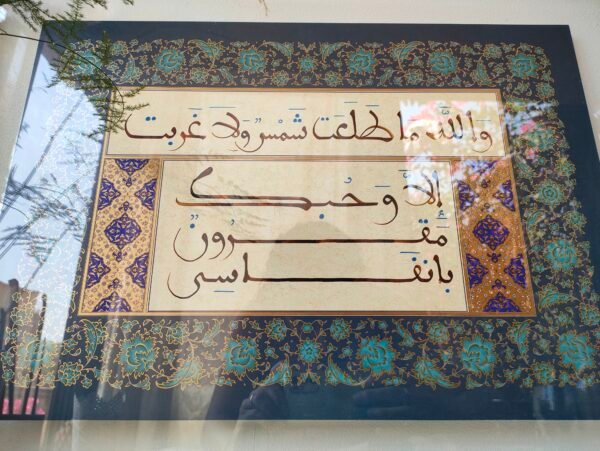 وَاللَّهِ ما طَلَعَت شَمْسٌ وَلا غَربت
إلَّا وَحُبك
مَقرُونٌ
بأنفَاسى